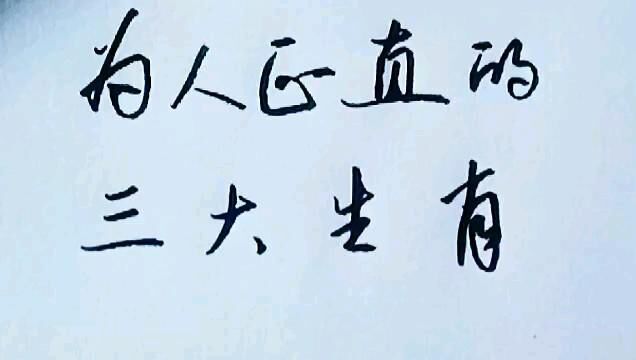 为人正直的
三大生肖